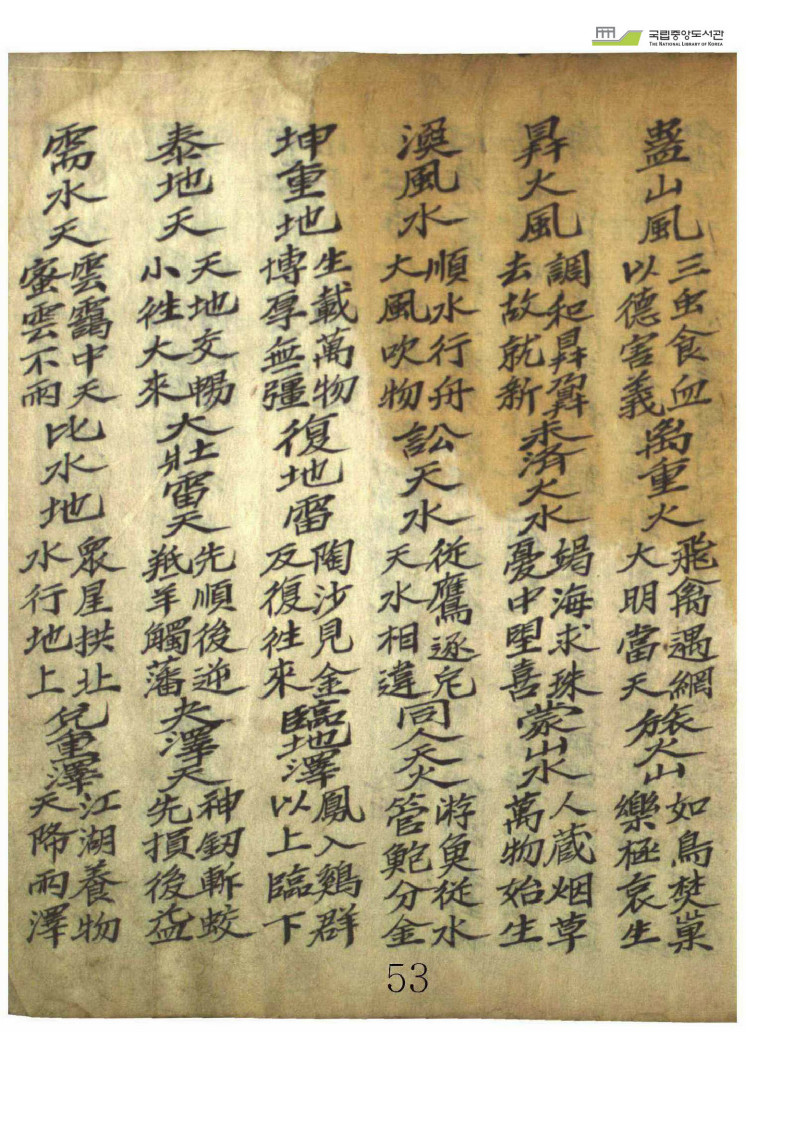 국립중앙도서관
THE NATIONAL LIBRARY OF KOREA
蠱山風 三虫食血 以德害義 离重火 飛禽遇網 大明當天 旅火山 如鳥焚巢 樂極哀生
鼎火風 調和鼎鼐 去故就新 未濟火水 竭海求珠 憂中望喜 蒙山水 人蔵烟草 萬物始生
渙風水 順水行舟 大風吹物 訟天水 從鷹逐兎 天水相違 同人天火 游魚從水 管鮑分金
坤重地 生載萬物 博厚無彊 復地雷 陶沙見金 反復徃來 臨地澤 鳳入鷄群 以上臨下
泰地天 天地交暢 小徃大來 大壯雷天 先順後逆 羝羊觸藩 夬澤天 神釰斬蛟 先損後益
需水天 雲靄中天 蜜雲不雨 比水地 衆星拱北 水行地上 兌重澤 江湖養物 天降雨澤
53